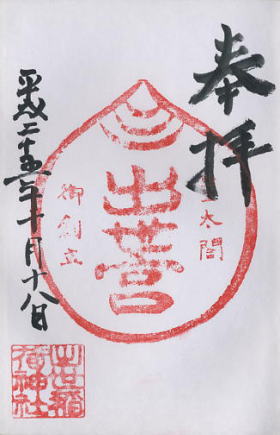 奉拝
太閤
出世
御創立
平成二十五年十月十八日
出世稲
荷神社